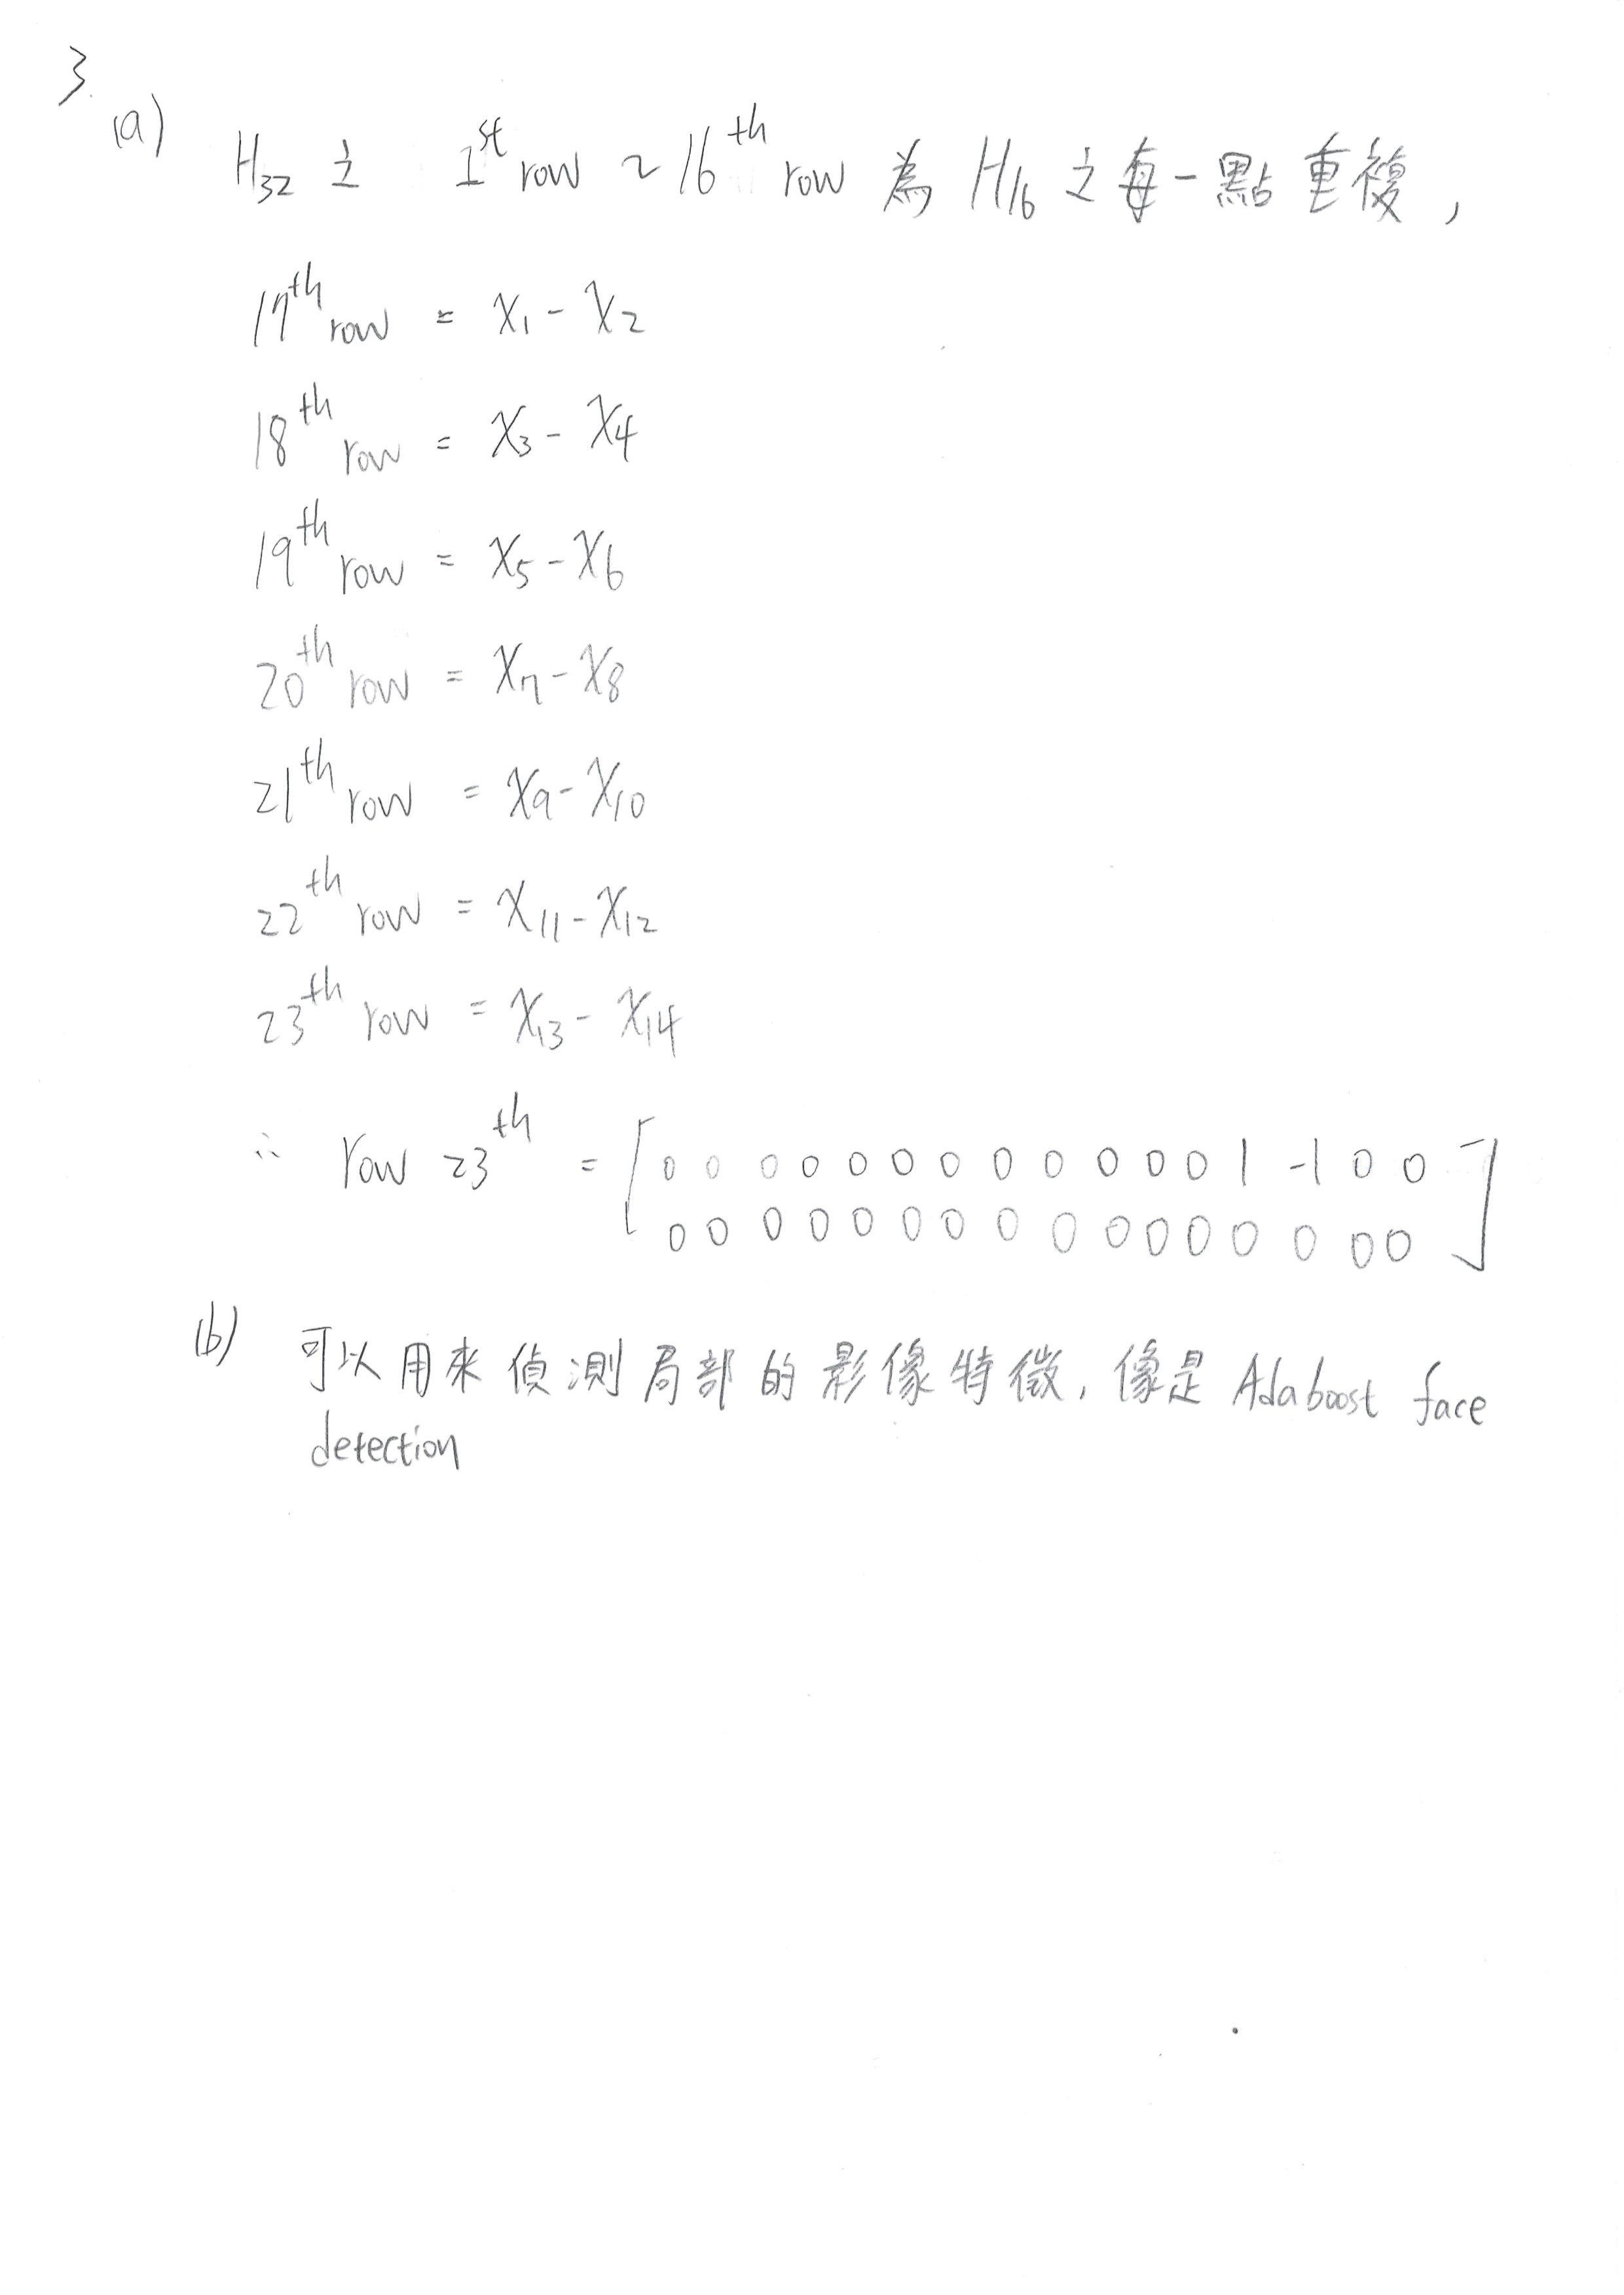 3.
(a)
H32 之 1st row ~ 16th row 為 H16 之每一點重複,
17th row = X1 - X2
18th row = X3 - X4
19th row = X5 - X6
20th row = X7 - X8
21th row = X9 - X10
22th row = X11 - X12
23th row = X13 - X14
∴ Row 23th = [ 0 0 0 0 0 0 0 0 0 0 0 0 1 -1 0 0
0 0 0 0 0 0 0 0 0 0 0 0 0 0 0 0 ]
(b) 可以用來偵測局部的影像特徵, 像是 Adaboost face
detection